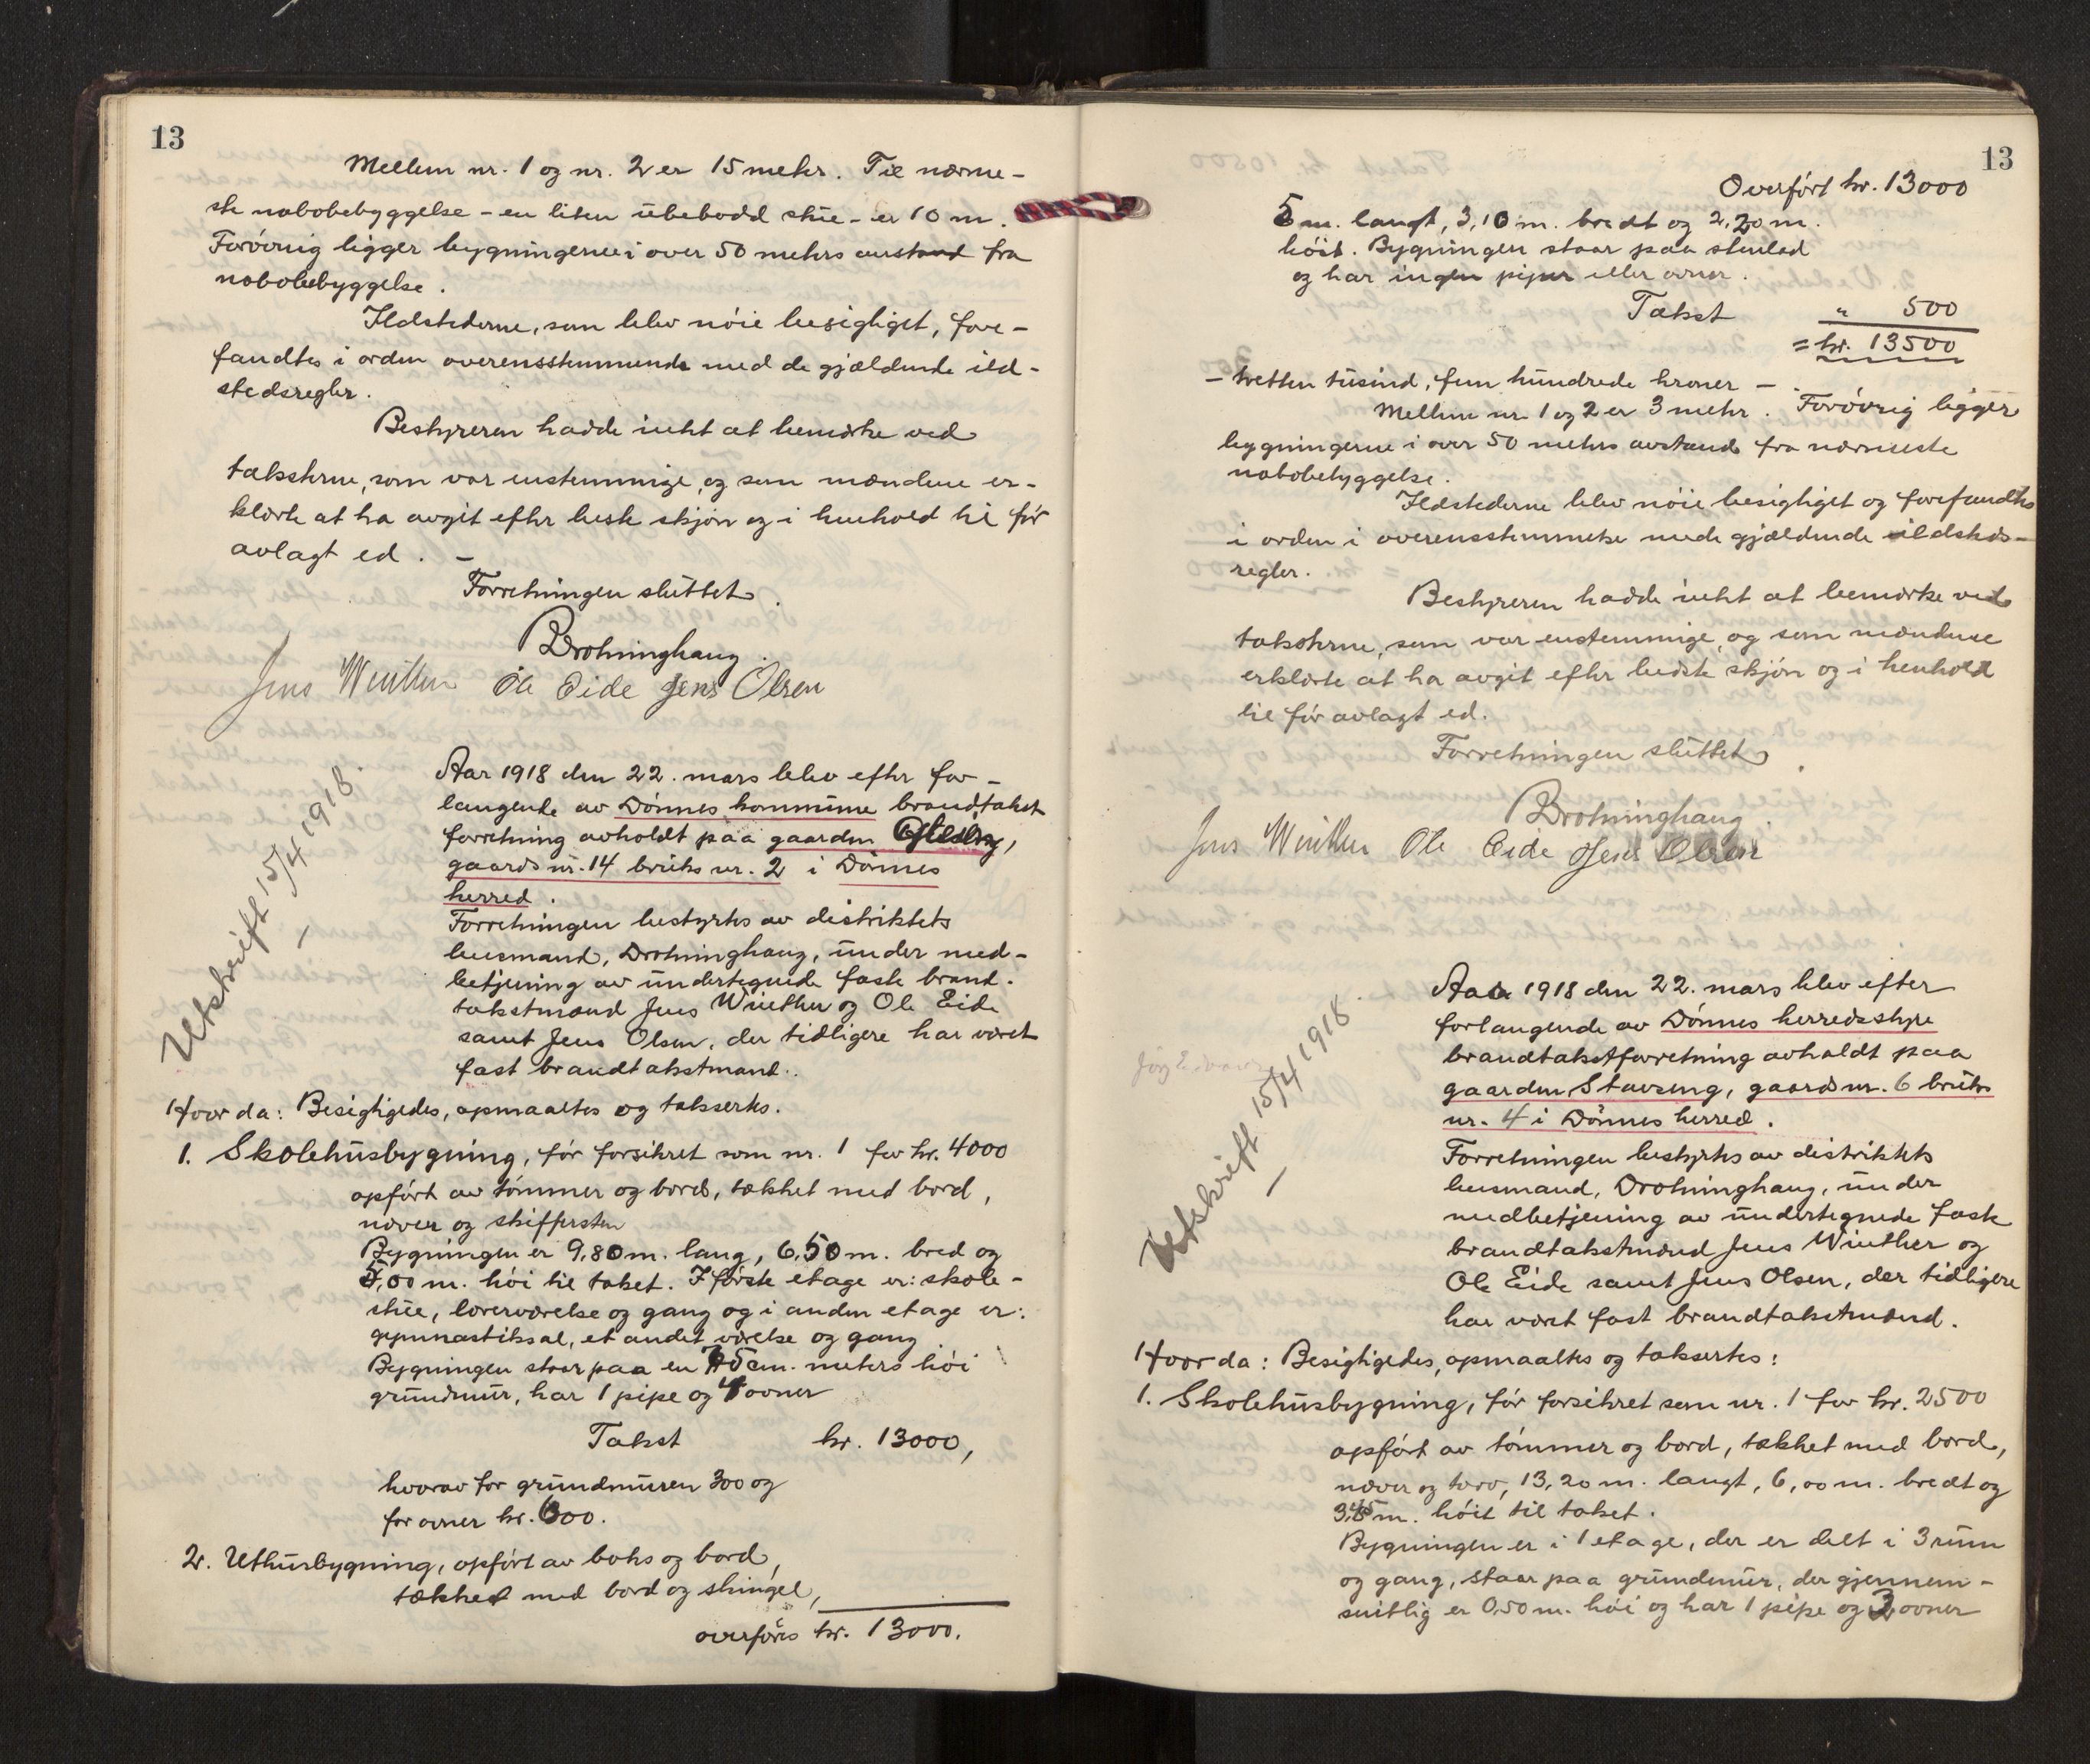 13
Mellem nr. 1 og nr. 2 er 15 meter. Til nærme-
ste nabobebyggelse - en liten ubebodd stue - er 10 m.
Forøvrig ligger bygningerne i over 50 meters avstand fra
nabobebyggelse.
Ildstederne, som blev nøie besigtiget, fore-
fandtes i orden overensstemmende med de gjældende ild-
stedsregler.
Bestyreren hadde intet at bemerke ved
taksterne, som var enstemmige, og som mændene er-
klærte at ha avgit efter beste skjøn og i henhold til før
avlagt ed. -
Forretningen sluttet.
Drotninghaug.
Jens Winther Ole Eide Jens Olsen
Utskrift 15/4 1918.
Aar 1918 den 22. mars blev efter for-
langende av Dønnes kommune brandtakst
forretning avholdt paa gaarden
gaards nr. 14 bruks nr. 2 i Dønnes
herred.
Forretningen bestyrtes av distriktets
lensmand, Drotninghaug, under med-
betjening av undertegnede faste brand-
takstmænd Jens Winther og Ole Eide
samt Jens Olsen, der tidligere har været
fast brandtakstmand.
Hvor da: Besigtigedes, opmaaltes og taksertes.
1. Skolehusbygning, før forsikret som nr. 1 for kr. 4000
opført av tømmer og bord, tækket med bord,
næver og skiffersten
Bygningen er 9,80 m. lang, 6,50 m. bred og
5,00 m. høi til taket. I første etage er: skole-
stue, lærerværelse og gang og i anden etage er:
gymnastiksal, et andet værelse og gang
Bygningen staar paa en 75 cm. meters høi
grundmur, har 1 pipe og 4 ovner
Takst kr. 13000,
hvorav for grundmuren 300 og
for ovner kr. 600.
2. Uthusbygning, opført av boks og bord,
tækket med bord og shingel,
overføres kr. 13000.
13
Overført kr. 13000
5 m. langt, 3,10 m. bredt og 2,20 m.
høit. Bygningen staar paa stenlad
og har ingen piper eller ovner.
Takst " 500
= kr. 13500
- tretten tusind, fem hundrede kroner -
Mellem nr. 1 og 2 er 3 meter. Forøvrig ligger
bygningerne i over 50 meters avstand fra nærmeste
nabobebyggelse.
Ildstederne blev nøie besigtiget og forefandtes
i orden i overensstemmelse med gjældende ildsteds-
regler.
Bestyreren hadde intet at bemerke ved
taksterne, som var enstemmige, og som mændene
erklærte at ha avgit efter bedste skjøn og i henhold
til før avlagt ed.
Forretningen sluttet.
Drotninghaug.
Jens Winther Ole Eide Jens Olsen
Utskrift 15/4 1918.
Aar 1918 den 22. mars blev efter
forlangende av Dønnes herredsstyre
brandtakstforretning avholdt paa
gaarden Stavseng, gaards nr. 6 bruks
nr. 4 i Dønnes herred.
Forretningen bestyrtes av distriktets
lensmand, Drotninghaug, under
medbetjening av undertegnede faste
brandtakstmænd Jens Winther og
Ole Eide samt Jens Olsen, der tidligere
har været fast brandtakstmænd.
Hvor da: Besigtigedes, opmaaltes og taksertes:
1. Skolehusbygning, før forsikret som nr. 1 for kr. 2500
opført av tømmer og bord, tækket med bord,
næver og torv, 13,20 m. langt, 6,00 m. bredt og
3,45 m. høit til taket.
Bygningen er i 1 etage, der er delt i 3 rum
og gang, staar paa grundmur, der gjennem-
snitlig er 0,50 m. høi og har 1 pipe og 3 ovner